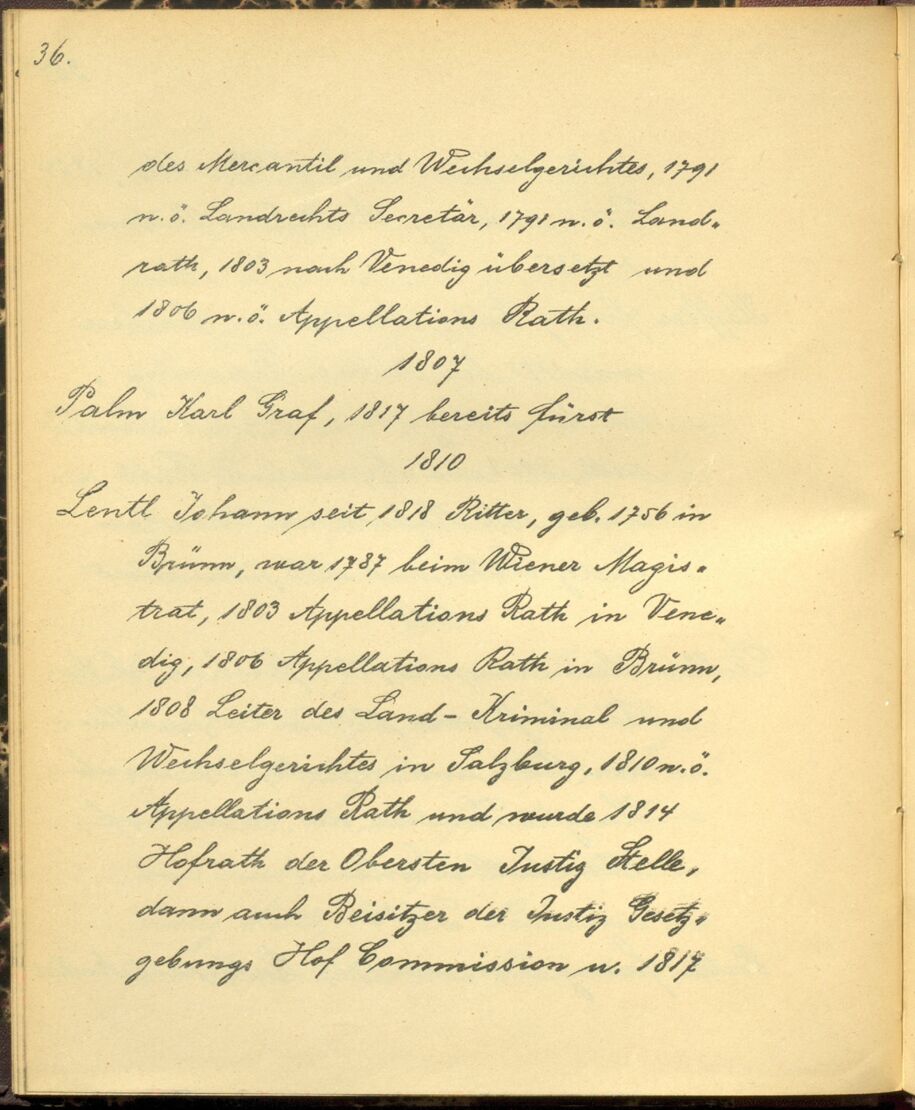 36.
des Mercantil und Wechselgerichtes, 1791
n. ö. Landrechts Secretär, 1791 n. ö. Land-
rath, 1803 nach Venedig übersetzt und
1806 n. ö. Appellations Rath.
1807
Palm Karl Graf, 1817 bereits Fürst
1810
Lentl Johann seit 1818 Ritter, geb. 1756 in
Brünn, war 1787 beim Wiener Magis-
trat, 1803 Appellations Rath in Vene-
dig, 1806 Appellations Rath in Brünn,
1808 Leiter des Land- Kriminal und
Wechselgerichtes in Salzburg, 1810 n. ö.
Appellations Rath und wurde 1814
Hofrath der Obersten Justiz Stelle,
dann auch Beisitzer der Justiz Gesetz-
gebungs Hof Commission u. 1817